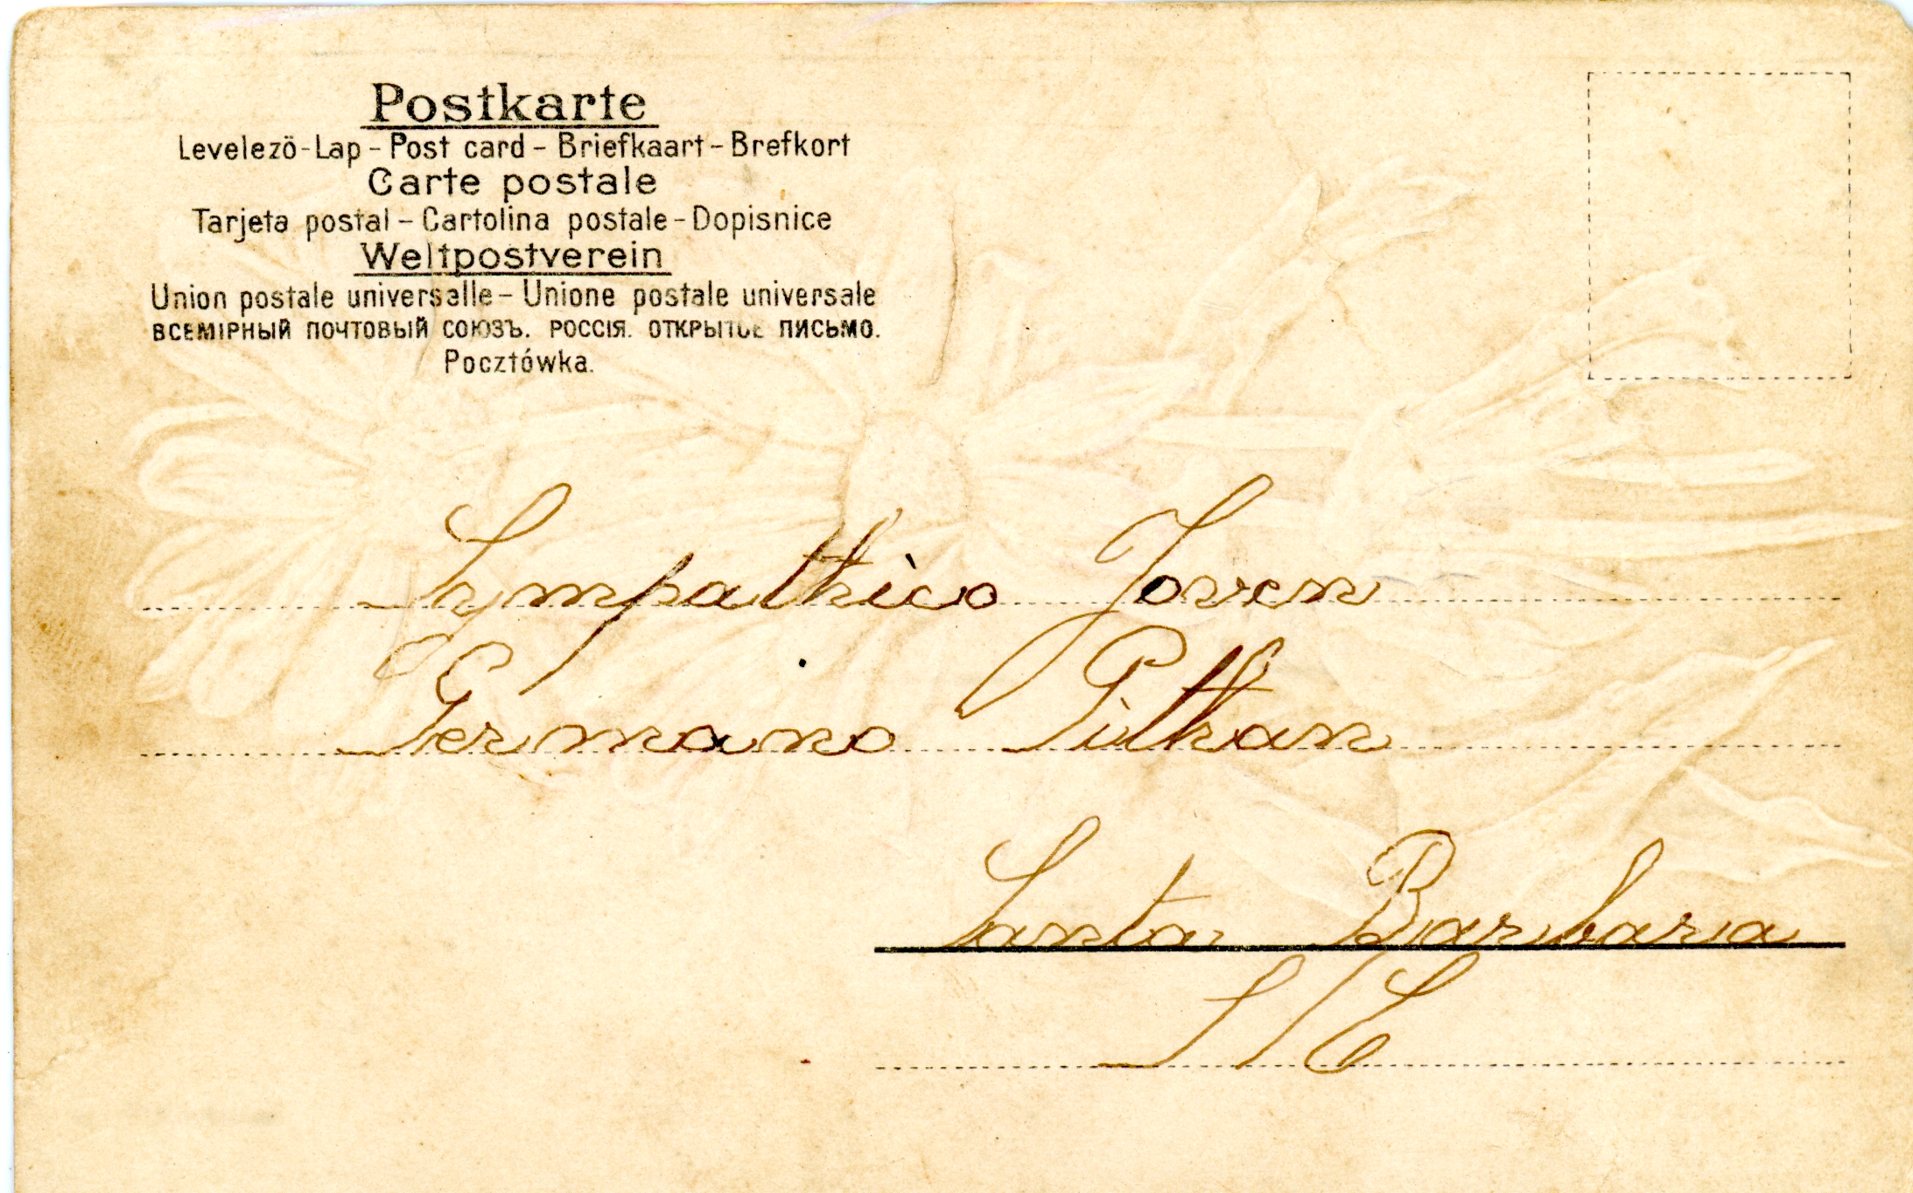 Postkarte
Levelezö-Lap - Post card - Briefkaart - Brefkort
Carte postale
Tarjeta postal - Cartolina postale - Dopisnice
Weltpostverein
Union postale universelle - Unione postale universale
ВСЕМІРНЫЙ ПОЧТОВЫЙ СОЮЗЪ. РОССІЯ. ОТКРЫТОЕ ПИСЬМО.
Pocztówka.
Sympathico Joven
Germano Pithan
Santa Barbara
S/C